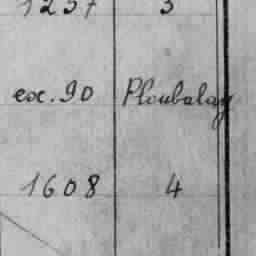 1237 3
ex. 90 Ploubalay
1608 4